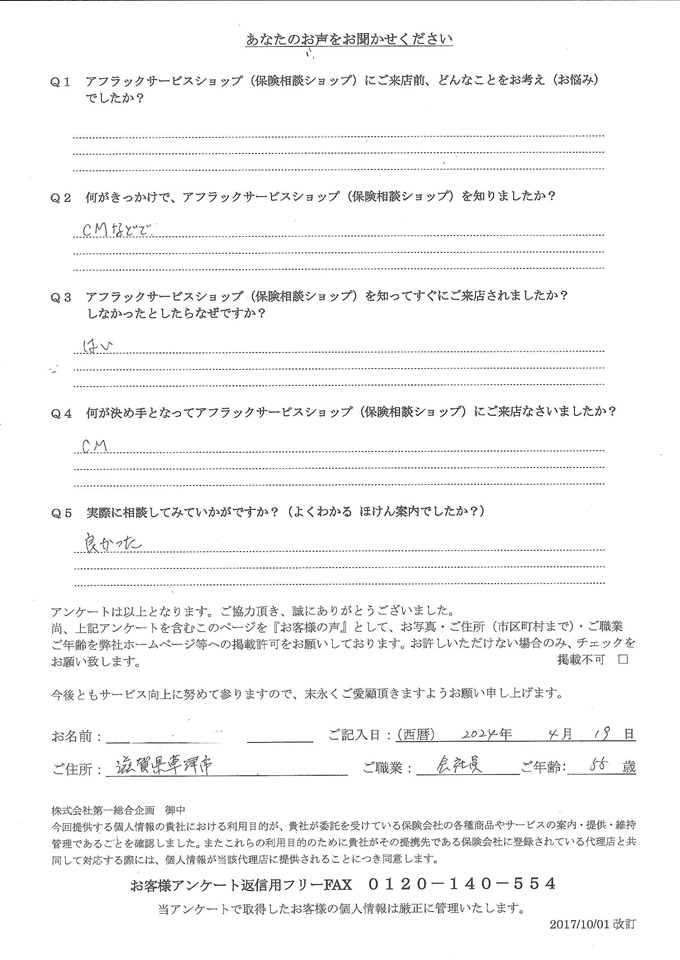 あなたのお声をお聞かせください
Q1 アフラックサービスショップ（保険相談ショップ）にご来店前、どんなことをお考え（お悩み）
でしたか？
Q2 何がきっかけで、アフラックサービスショップ（保険相談ショップ）を知りましたか？
CMなどで
Q3 アフラックサービスショップ（保険相談ショップ）を知ってすぐにご来店されましたか？
しなかったとしたらなぜですか？
はい
Q4 何が決め手となってアフラックサービスショップ（保険相談ショップ）にご来店なさいましたか？
CM
Q5 実際に相談してみていかがですか？（よくわかる ほけん案内でしたか？）
良かった
アンケートは以上となります。ご協力頂き、誠にありがとうございました。
尚、上記アンケートを含むこのページを『お客様の声』として、お写真・ご住所（市区町村まで）・ご職業
ご年齢を弊社ホームページ等への掲載許可をお願いしております。お許しいただけない場合のみ、チェックを
お願い致します。 掲載不可 □
今後ともサービス向上に努めて参りますので、末永くご愛顧頂きますようお願い申し上げます。
お名前： ご記入日：（西暦） 2024年 4月 19日
ご住所： 滋賀県草津市 ご職業： 会社員 ご年齢： 55 歳
株式会社第一総合企画 御中
今回提供する個人情報の貴社における利用目的が、貴社が委託を受けている保険会社の各種商品やサービスの案内・提供・維持
管理であることを確認しました。またこれらの利用目的のために貴社がその提携先である保険会社に登録されている代理店と共
同して対応する際には、個人情報が当該代理店に提供されることにつき同意します。
お客様アンケート返信用フリーFAX 0120－140－554
当アンケートで取得したお客様の個人情報は厳正に管理いたします。
2017/10/01 改訂